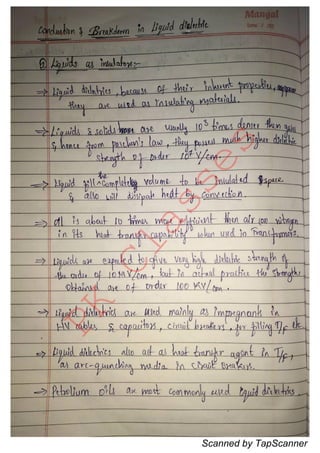 Mangal
Conduction & Breakdown in Liquid dielectric
Liquids as insulators:-
⇒ Liquid dielctrics, because of their inherent properties,
they are used as insulating materials.
⇒ Liquids & solids are usually 10³ times denser then gases
& hence from paschen's law, they possess much higher dielectric
strength of order 10⁷ V/cm.
⇒ Liquid fill the completely volume to be insulated space
& also will dissipat heat by convection.
⇒ oil is about 10 times more efficient than air or nitrogen
in its heat transfer capability when used in Transformers.
⇒ Liquids are expected to give very high dielectric strength of
the order of 10 MV/cm, but in actual practice the strengths
obtained are of order 100 KV/cm.
⇒ Liquid dielctrics are used mainly as impregnants in
HV cables & capacitors, circuit breakers, for filling T/F etc.
⇒ Liquid dielectrics also act as heat transfer agent in T/F,
as arc-quenching media in circuit breakers.
⇒ Petrolium oils are most commonly used liquid dielctrics.
IK Classes
Scanned by TapScanner